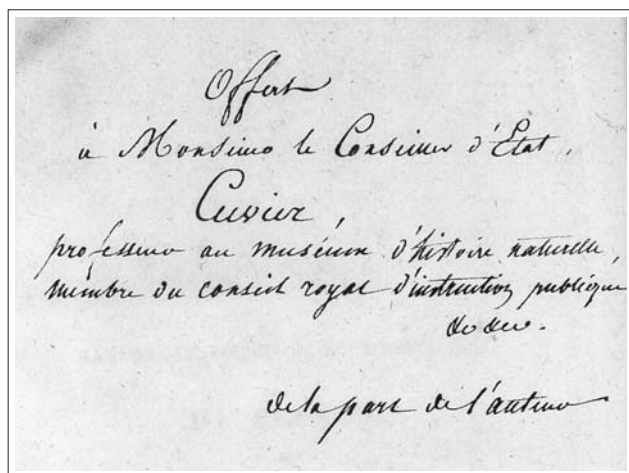 Offert
à Monsieur le Conseiller d'État,
Cuvier,
professeur au muséum d'histoire naturelle,
membre du conseil royal d'instruction publique
de la part de l'auteur